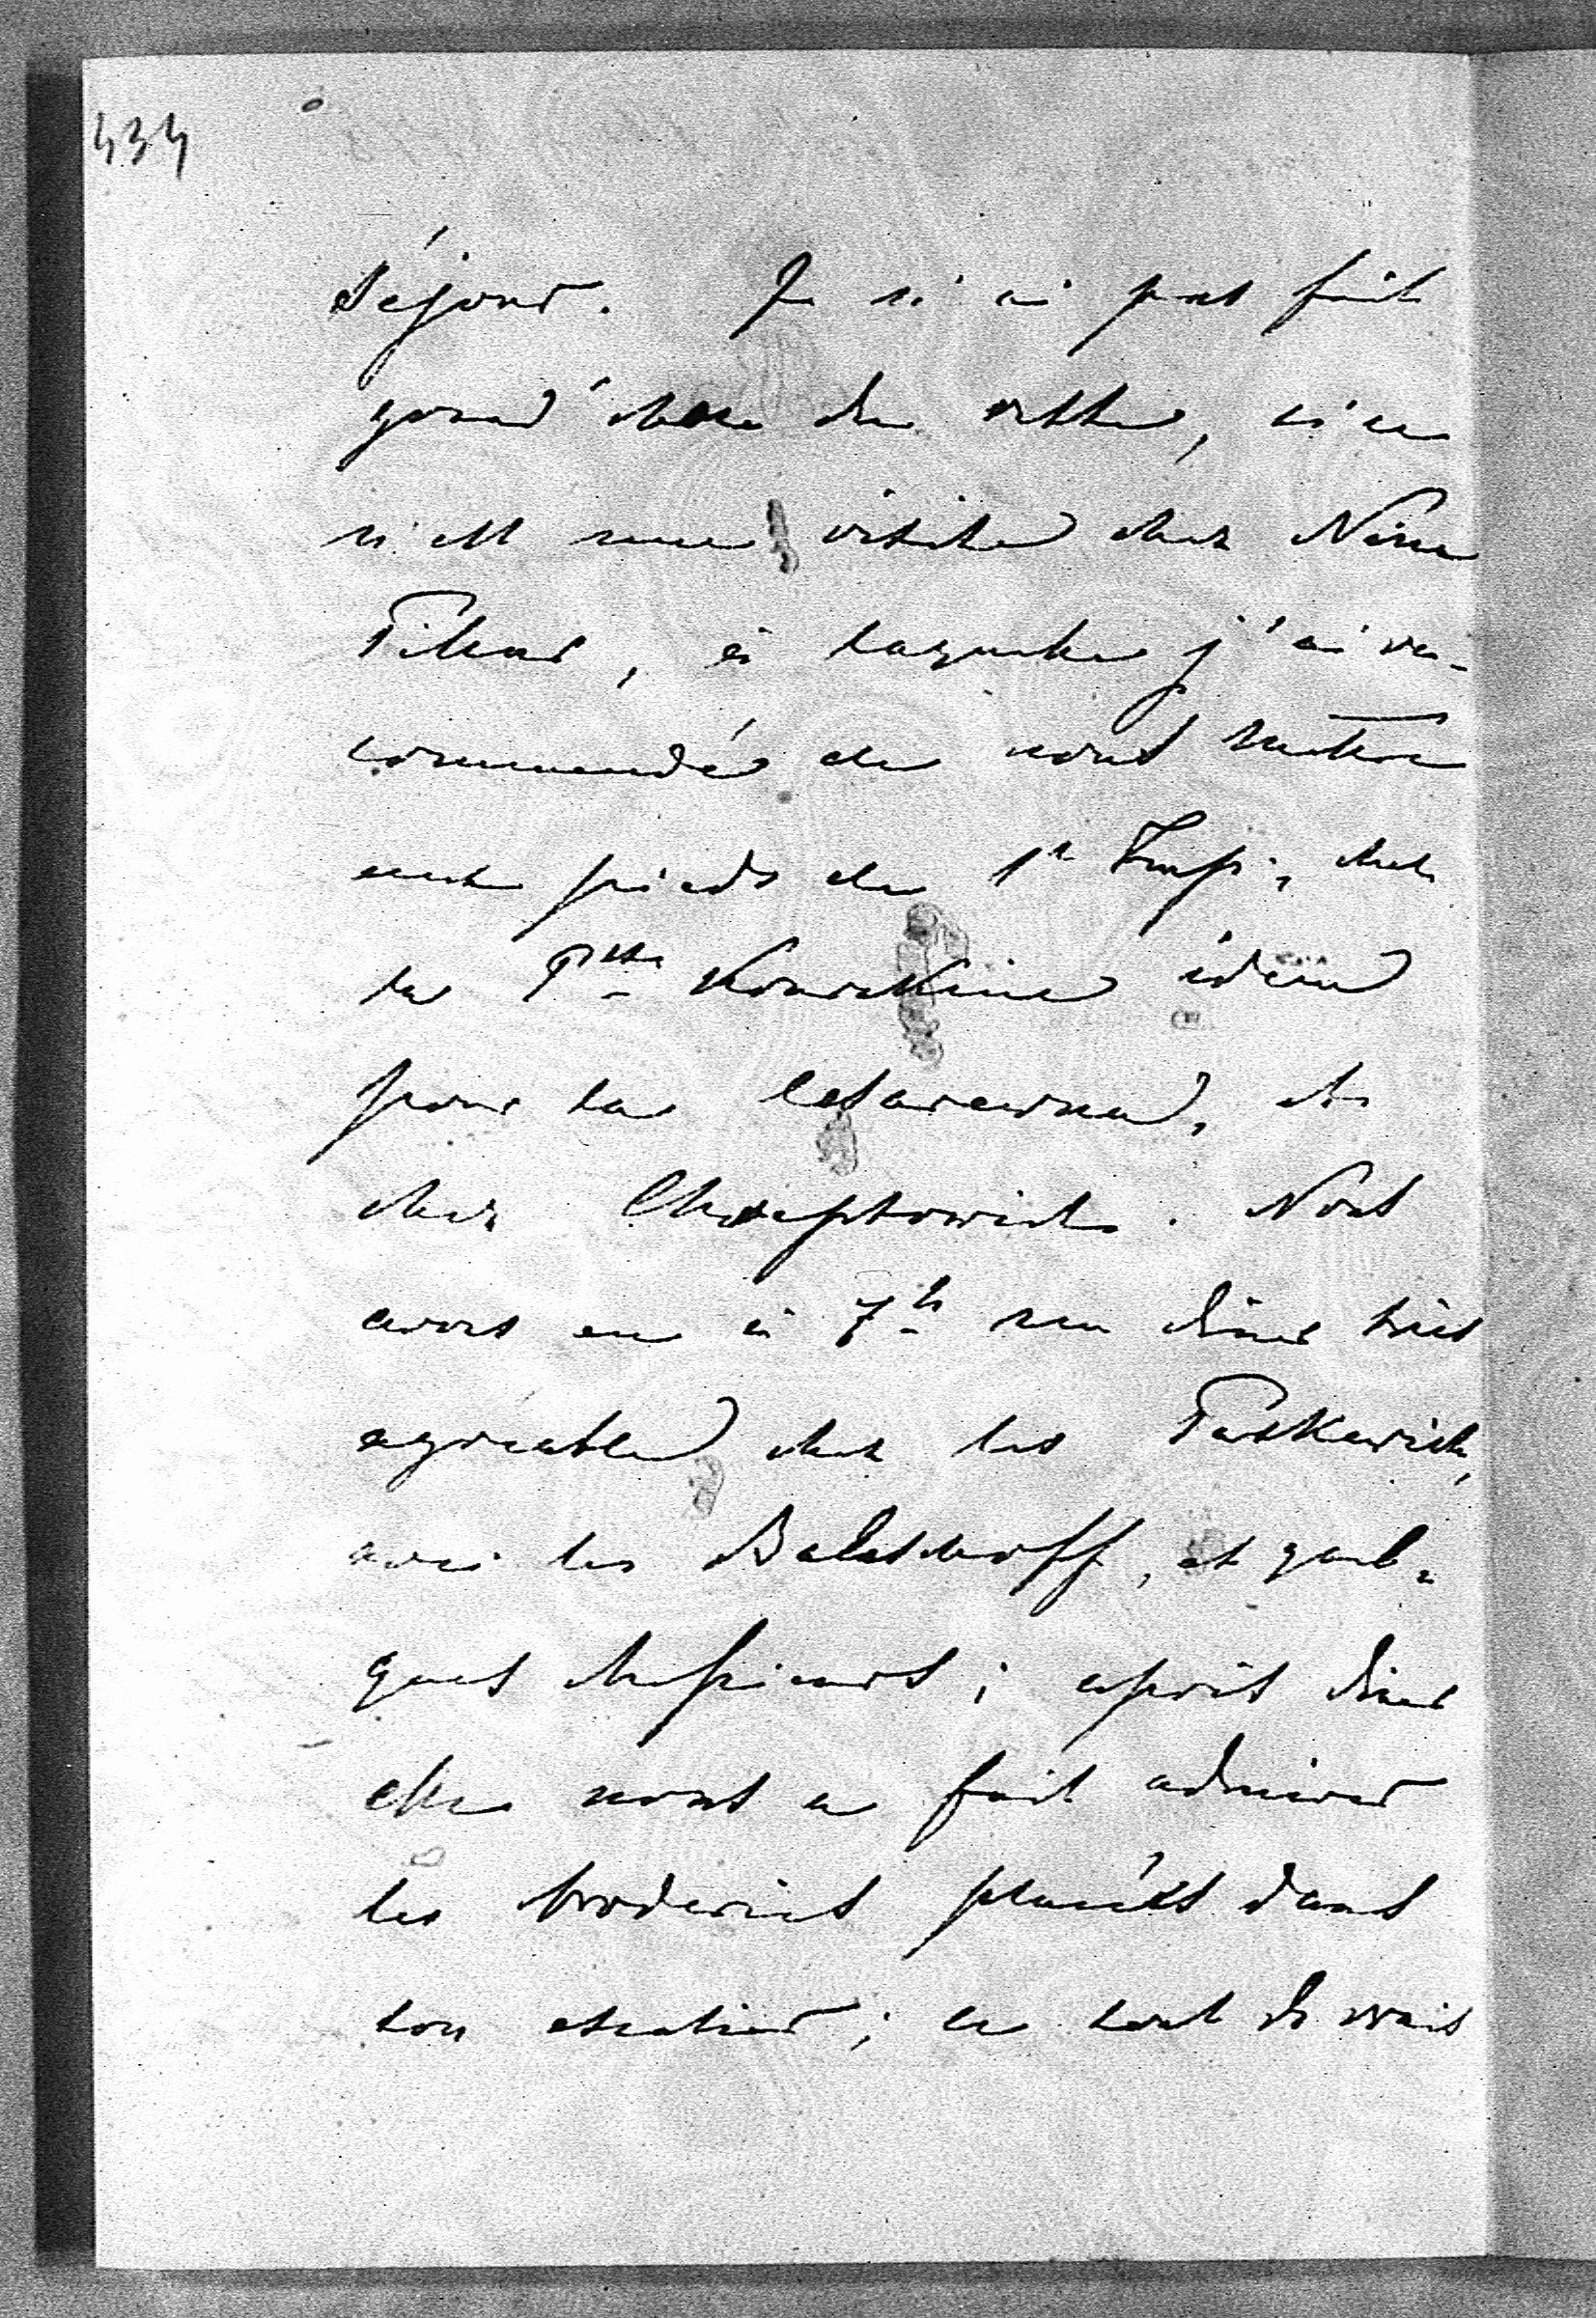 434
séjour. Je n'ai pas fait
grand'chose de reste, si ce
n'est une visite chez Nina
Pillar, à laquelle j'ai re-
commandé de nous mettre
aux pieds de l'Imp:, chez
la Psse Kourakine idem
pour la Cesarewna, et
chez Chreptowich. Nous
avons eu à 7h un dîner très
agréable chez les Paskewich,
avec les Balaschoff, et quel-
ques Messieurs; après dîner
elle nous a fait admirer
les broderies placées dans
son atelier; le tout devait